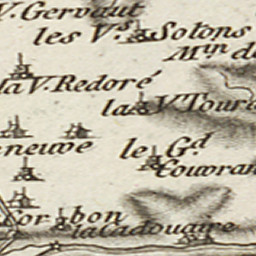 V. Gervaut
les Vˢ Solons
Mⁱⁿ de
la V. Redoré
la V Tour
neuve
le Gᵈ
Couvran
Cor bon
la Cadouaire